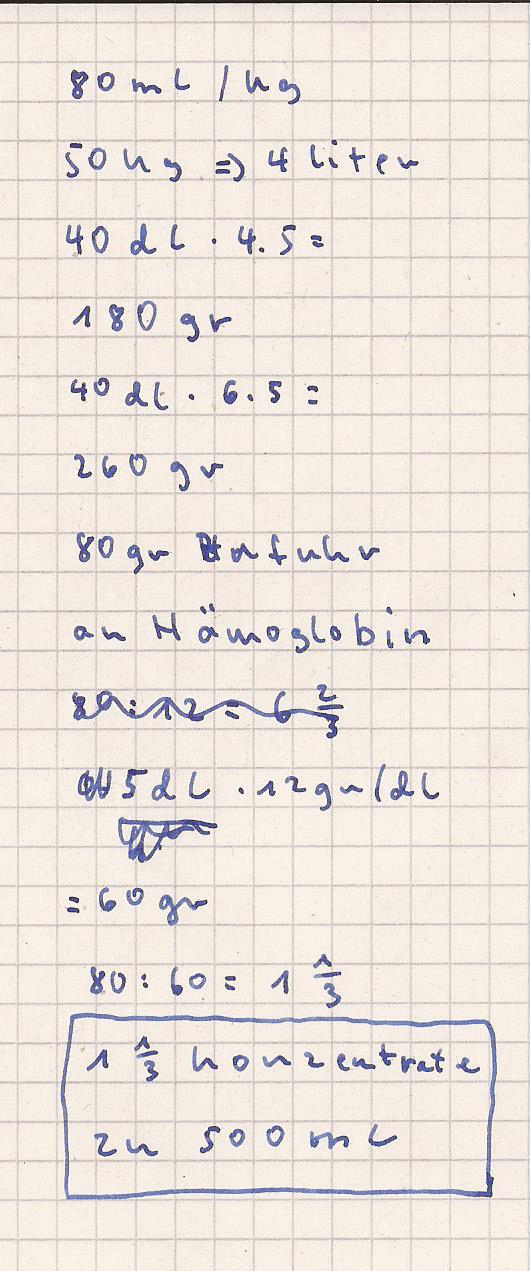 80 ml / kg
50 kg => 4 liter
40 dl · 4.5 =
180 gr
40 dl · 6.5 =
260 gr
80 gr Zufuhr
an Hämoglobin
80 : 12 = 6 2/3
5 dl · 12 gr/dl
= 60 gr
80 : 60 = 1 1/3
1 1/3 Konzentrate
zu 500 ml